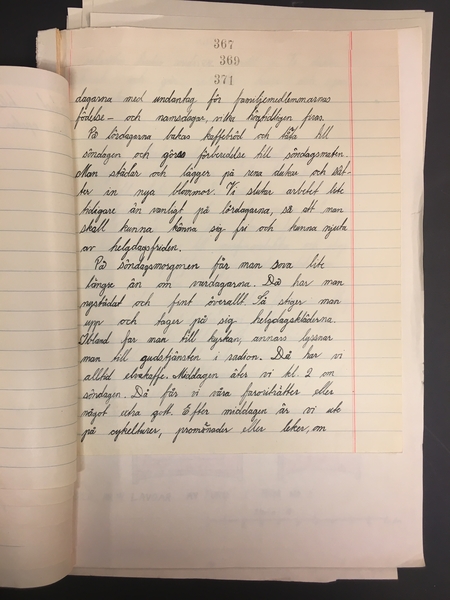 367
369
371
dagarna med undantag för familjemedlemmarnas
födelse- och namnsdagar, vilka högtidligen firas.
På lördagarna bakas kaffebröd och tårta till
söndagen och göres förberedelse till söndagsmaten.
Man städar och lägger på rena dukar och sät-
ter in nya blommor. Vi slutar arbetet lite
tidigare än vanligt på lördagarna, så att man
skall kunna känna sig fri och kunna njuta
av helgdagsfriden.
På söndagsmorgonen får man sova lite
längre än om vardagarna. Då har man
nystädat och fint överallt. Så stiger man
upp och tager på sig helgdagskläderna.
Ibland far man till kyrkan, annars lyssnar
man till gudstjänsten i radion. Då har vi
alltid elvakaffe. Middagen äter vi kl. 2 om
söndagen. Då får vi våra favoriträtter eller
något extra gott. Efter middagen är vi ute
på cykelturer, promenader eller leker, om